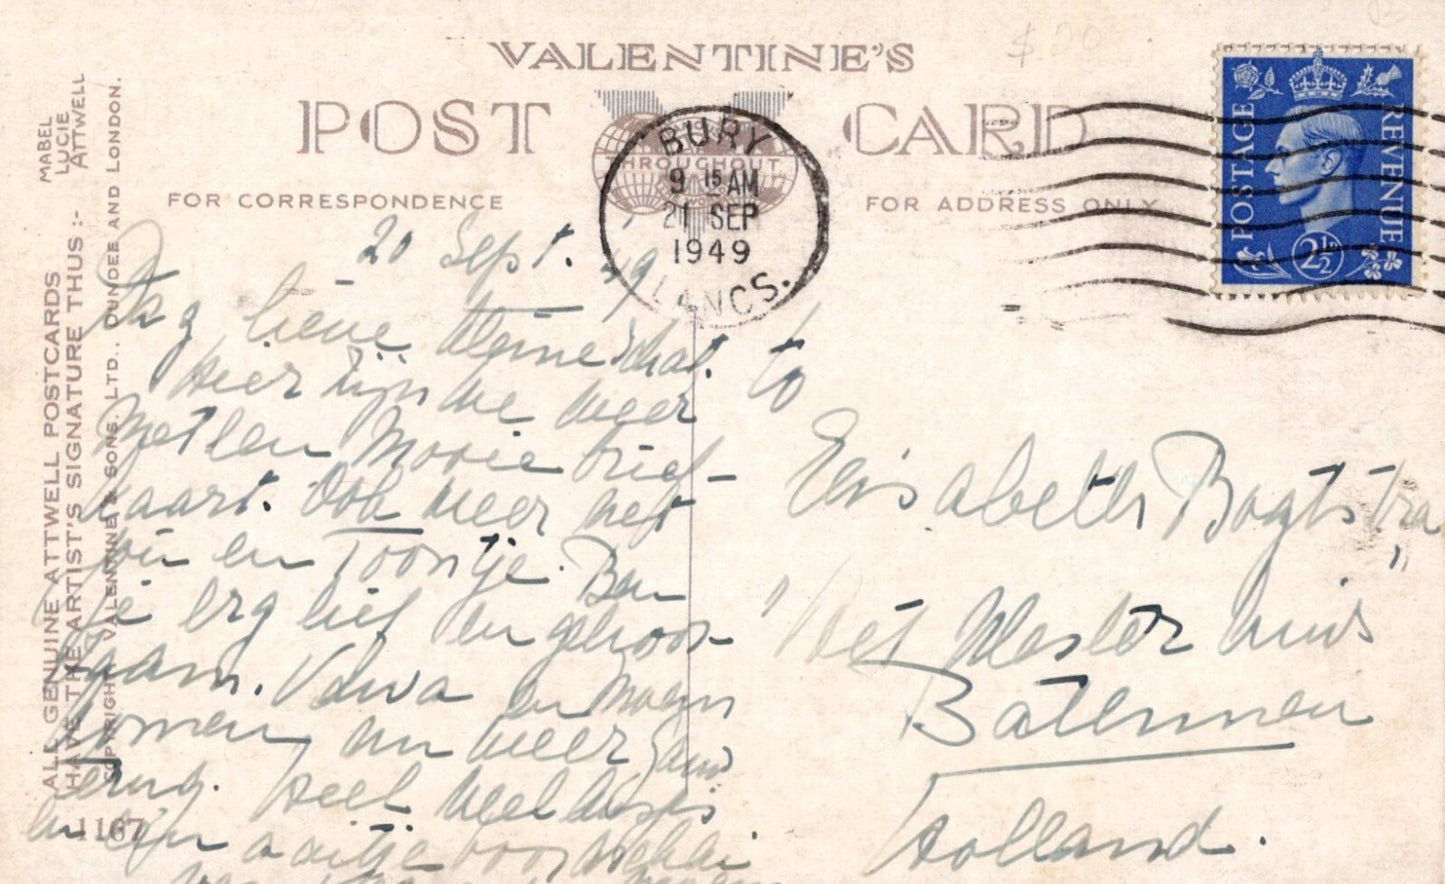 $ 20
VALENTINE'S
POST CARD
THROUGHOUT
FOR CORRESPONDENCE
FOR ADDRESS ONLY
MABEL
LUCIE
ATTWELL
ALL GENUINE ATTWELL POSTCARDS
HAVE THE ARTIST'S SIGNATURE THUS :-
COPYRIGHT VALENTINE & SONS. LTD., DUNDEE AND LONDON.
BURY
9 15 AM
21 SEP
1949
LANCS.
POSTAGE
REVENUE
2½
20 Sept. '49
Dag lieve kleine schat.
Hier zijn we weer
met een mooie brief-
kaart. Ook weer met
en Toontje. Ben
je erg lief en gehoor-
zaam. en Moems
komen nu weer gauw
terug. Heel veel kusjes
en een aaitje voor
to
Elisabeth Bogtstra
"Het Wester huis"
Batenman
Holland.
1167